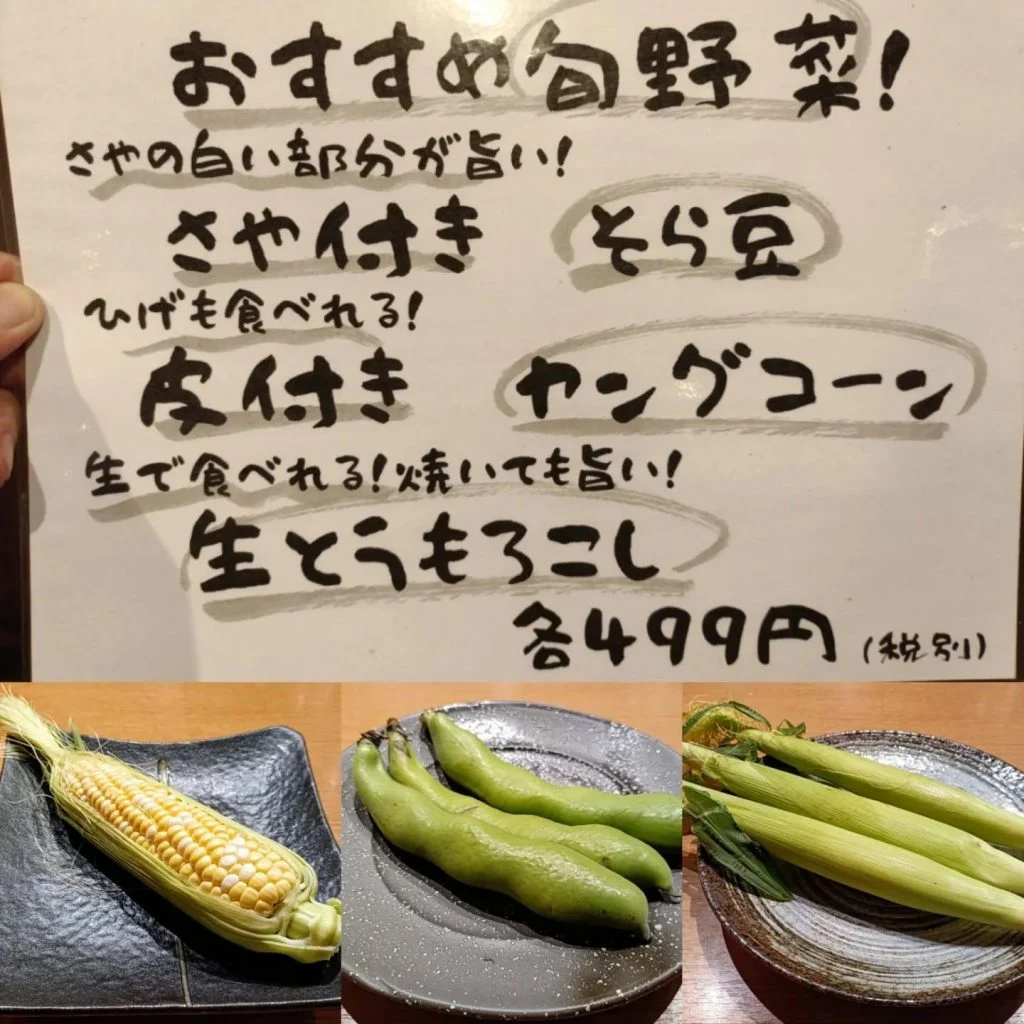 おすすめ旬野菜!
さやの白い部分が旨い!
さや付き そら豆
ひげも食べれる!
皮付き ヤングコーン
生で食べれる!焼いても旨い!
生とうもろこし
各499円(税別)